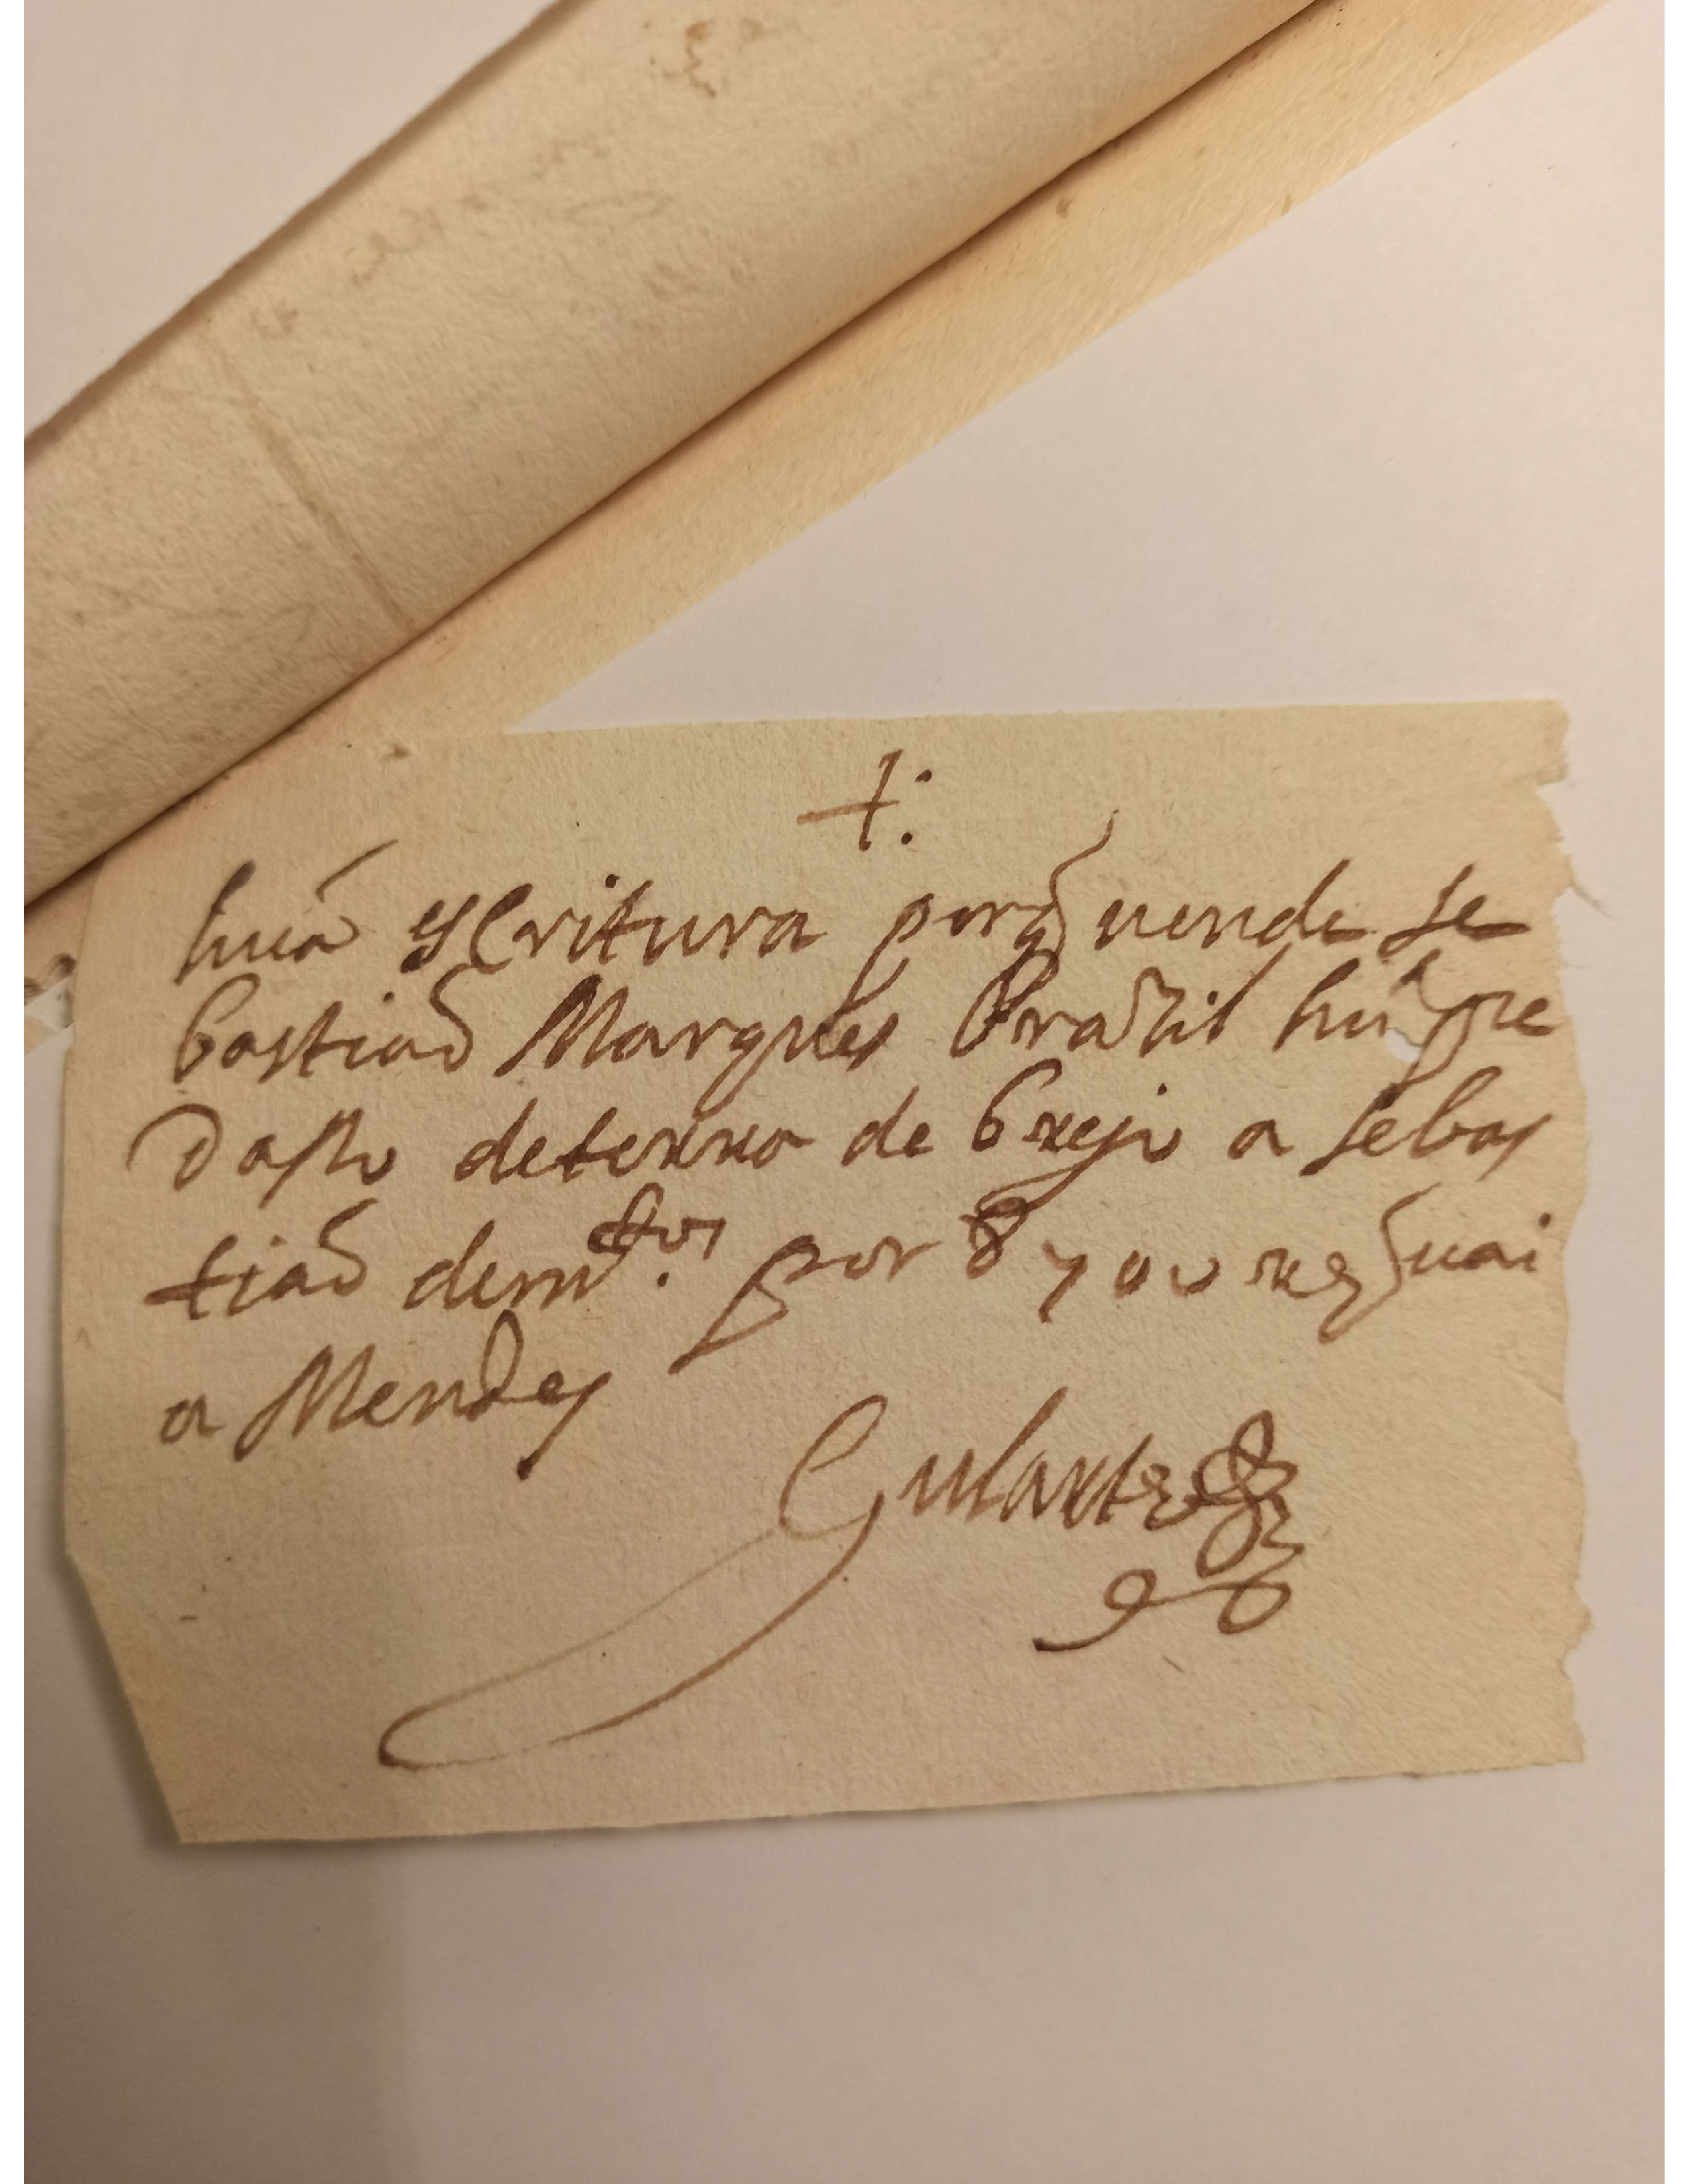 +:
huã escritura porq̃ uende se
bastiaõ Marques Brazil hũ pe
daso de terra de brejo a sebas
tiaõ de
por 8700 res uai
a Mendes
Gularte